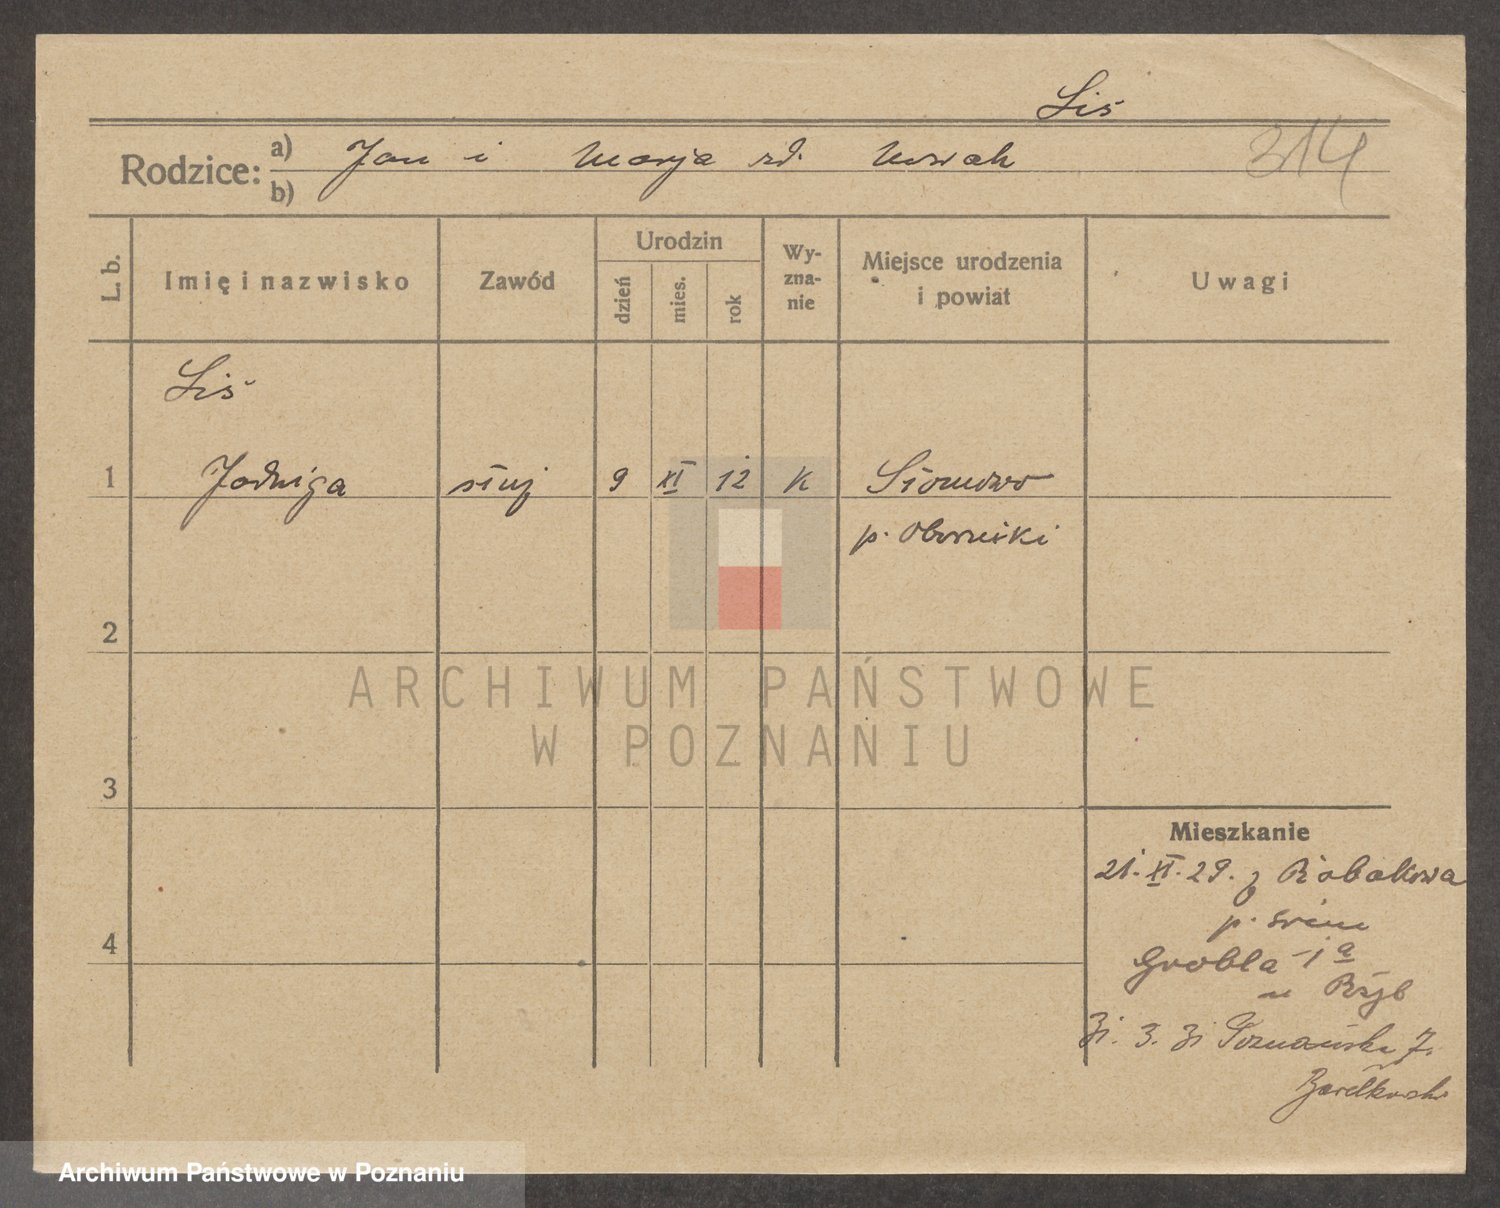 Liś
314
Rodzice: a) Jan i Marja zd. Nowak
b)
L. b.
Imię i nazwisko
Zawód
Urodzin
dzień
mies.
rok
Wy-
zna-
nie
Miejsce urodzenia
i powiat
Uwagi
Liś
1 Jadwiga służ 9 XI 12 K Słomowo
p. Oborniki
2
ARCHIWUM PAŃSTWOWE
W POZNANIU
3
Mieszkanie
21. XI. 29. z Robakowa
p. Śrem
4
Grobla 1a
u
Poznańska 7.
Archiwum Państwowe w Poznaniu